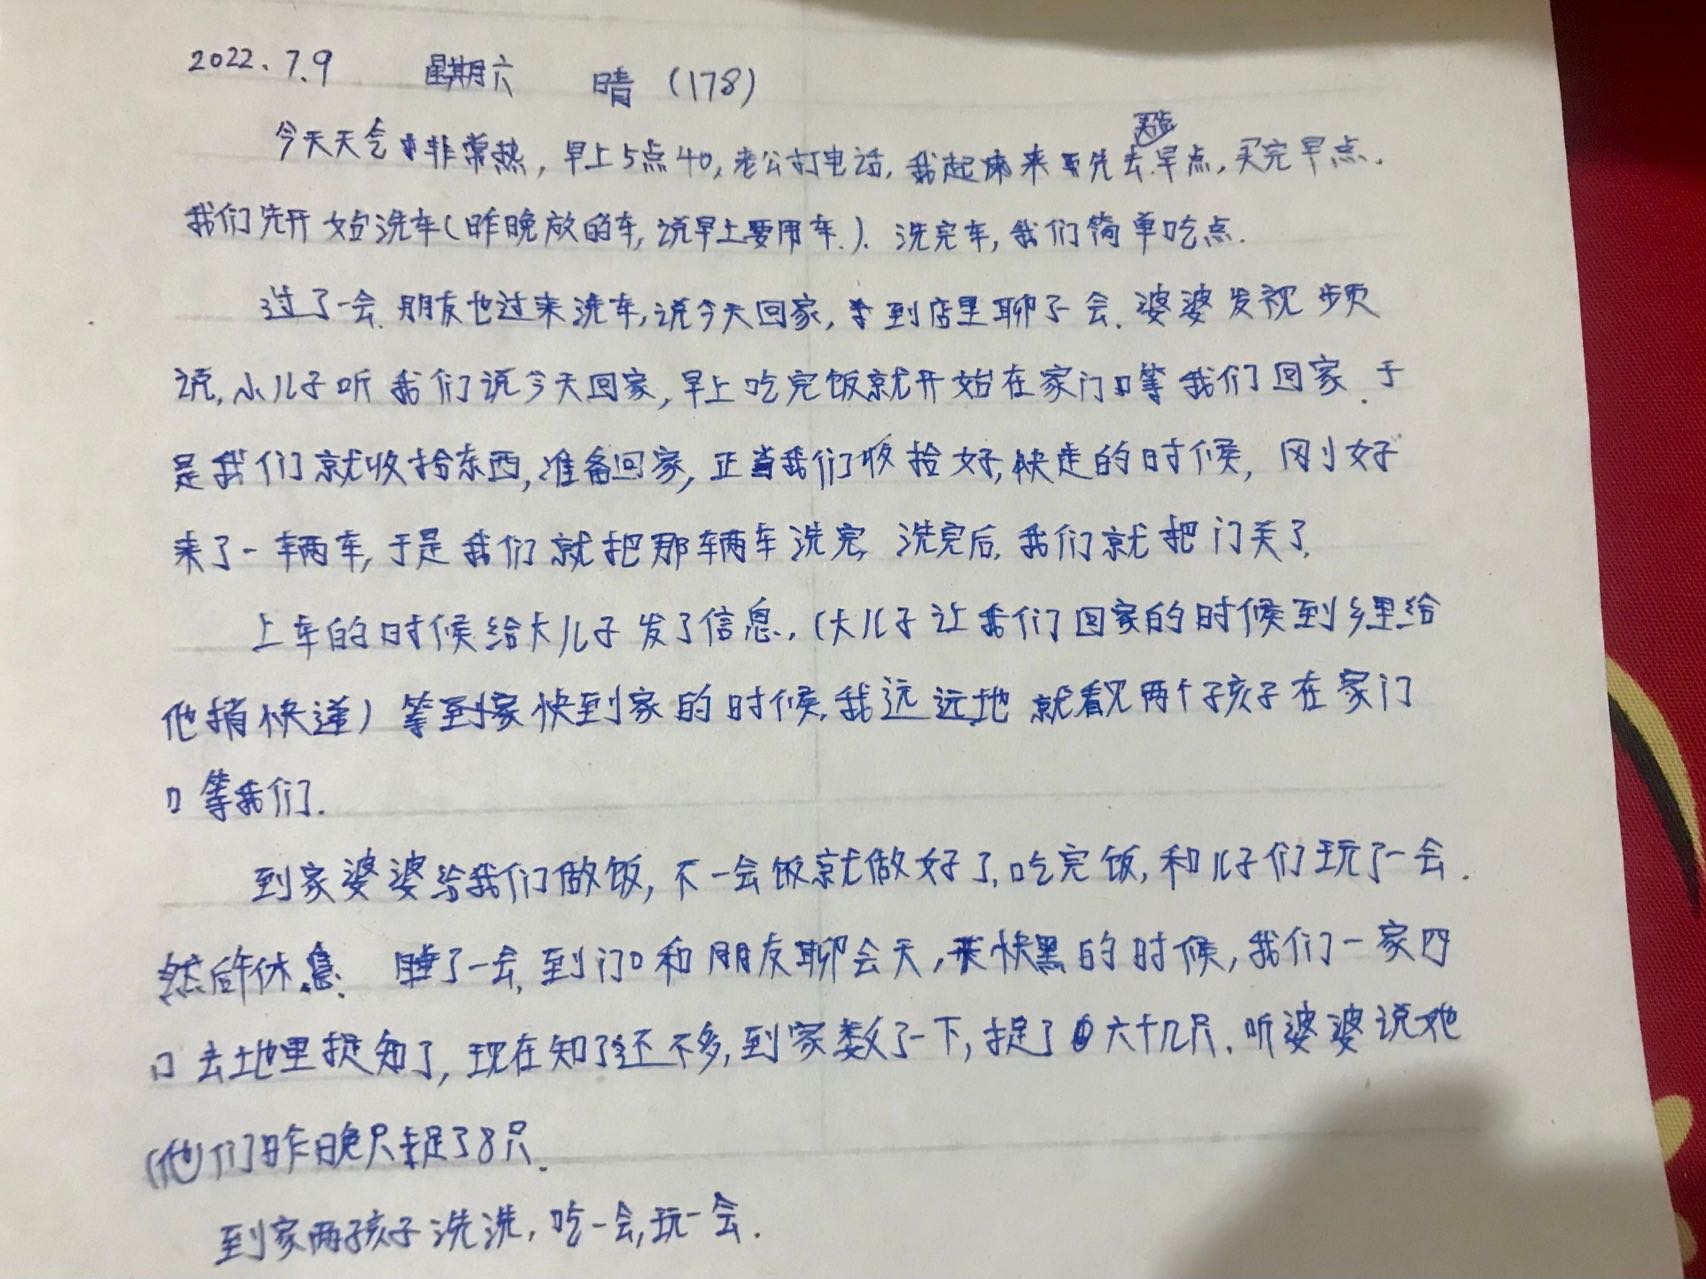 2022.7.9 星期六 晴(178)
今天天气非常热,早上5点40,老公打电话,我起床来先去买些早点,买完早点.
我们先开始洗车(昨晚放的车,说早上要用车.).洗完车,我们简单吃点.
过了一会.朋友也过来洗车,说今天回家,到店里聊了会.婆婆发视频
说,小儿子听我们说今天回家,早上吃完饭就开始在家门口等我们回家.于
是我们就收拾东西,准备回家,正当我们收拾好,快走的时候,刚好
来了一辆车,于是我们就把那辆车洗完 洗完后,我们就把门关了.
上车的时候给大儿子发了信息.(大儿子让我们回家的时候到乡里给
他捎快递)等到家快到家的时候,我远远地就看见两个孩子在家门
口等我们.
到家婆婆给我们做饭,不一会饭就做好了,吃完饭,和儿子们玩了一会.
然后午休息. 睡了一会,到门口和朋友聊会天,天快黑的时候,我们一家四
口去地里捉知了,现在知了还不多,到家数了一下,捉了六十几只.听婆婆说他
(他)们昨晚只捉了8只.
到家两孩子洗洗,吃一会,玩一会.